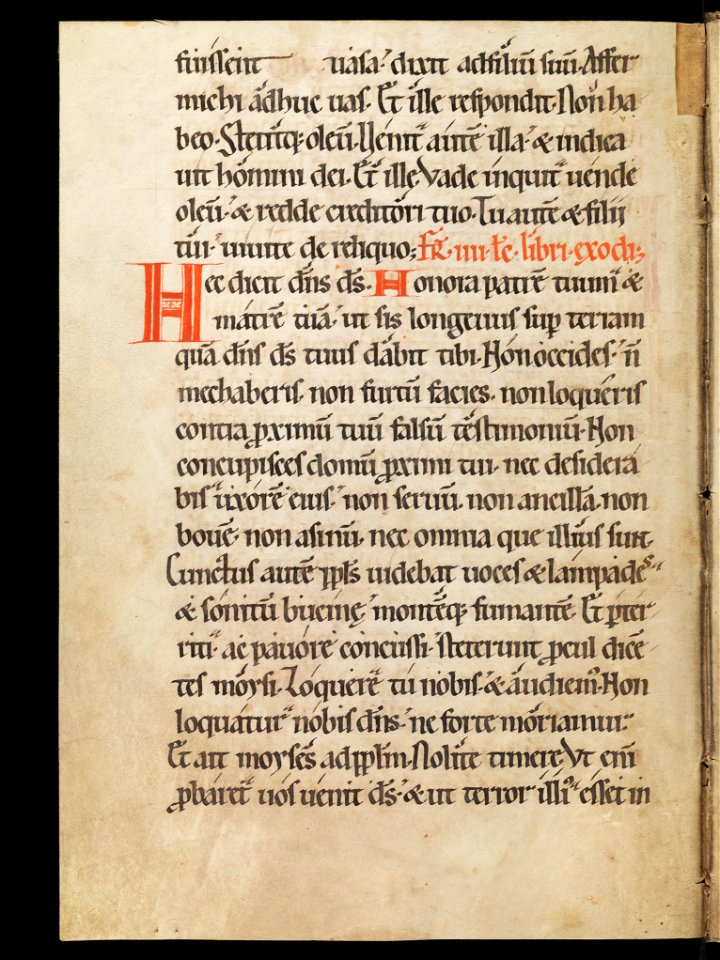 fuissent uasa. dixit ad filiũ suũ. Affer
michi adhuc uas. Et ille respondit. Non ha
beo. Stetitq; oleũ. Uenit autẽ illa. & indica
uit homini dei. Et ille. Vade inquit uende
oleũ. & redde creditori tuo. Tu autẽ & filii
tui. uiuite de reliquo; FR. iiii. łe. libri. exodi;
Hec dicit dñs ds̃. Honora patrẽ tuum &
matrẽ tuã. ut sis longeuus sup terram
quã dñs ds̃ tuus dabit tibi. Non occides. ñ
mechaberis. non furtũ facies. non loqueris
contra ꝓximũ tuũ falsũ testimoniũ. Non
concupisces domũ ꝓximi tui. nec desidera
bis uxorẽ eius. non seruũ. non ancillã. non
bouẽ. non asinũ. nec omnia que illius sunt.
Cunctus autẽ ppłs uidebat uoces & lampades.
& sonitũ bucinę. montẽq; fumantẽ. Et ꝑter
riti. ac pauore concussi. steterunt ꝓcul dicẽ
tes moysi. Loquere tu nobis. & audiem᷒. Non
loquatur nobis dñs. ne forte moriamur.
Et ait moyses ad ppłm. Nolite timere. Vt eni
ꝓbaret uos uenit ds̃. & ut terror illi᷒ esset in